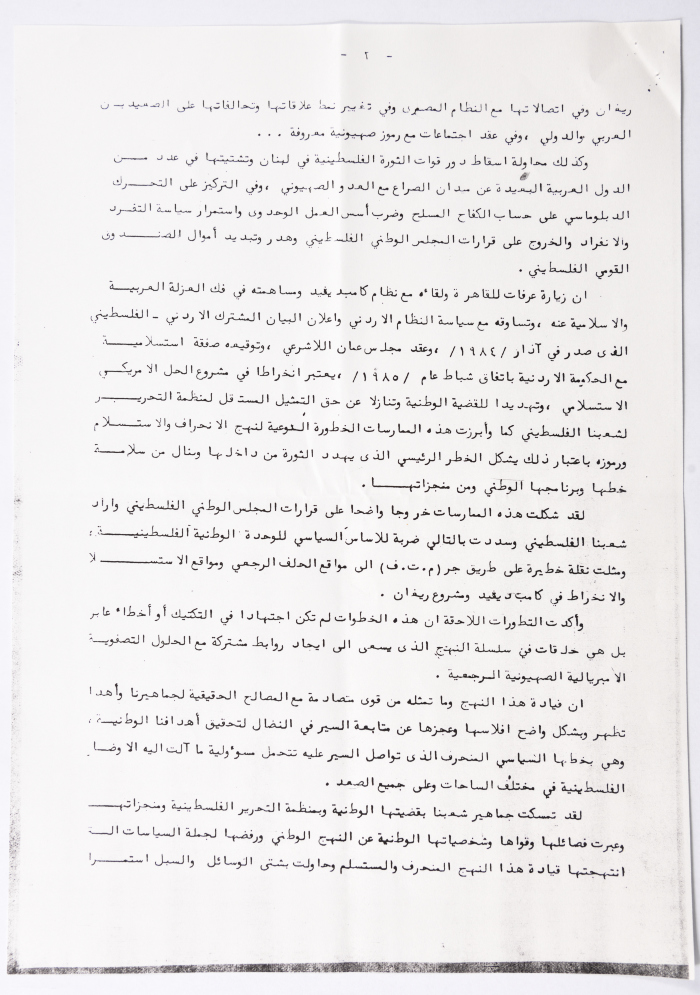 - ٢ -
ريغان وفي اتصالاتها مع النظام المصري وفي تغيير نمط علاقاتها وتحالفاتها على الصعيدين
العربي والدولي ، وفي عقد اجتماعات مع رموز صهيونية معروفة ...
وكذلك محاولة اسقاط دور قوات الثورة الفلسطينية في لبنان وتشتيتها في عدد من
الدول العربية البعيدة عن ميدان الصراع مع العدو الصهيوني ، وفي التركيز على التحرك
الدبلوماسي على حساب الكفاح المسلح وضرب أسس العمل الوحدوى واستمرار سياسة التفرد
والانفراد والخروج على قرارات المجلس الوطني الفلسطيني وهدر وتبديد أموال الصندوق
القومي الفلسطيني .
ان زيارة عرفات للقاهرة ولقاءه مع نظام كامب ديفيد ومساهمته في فك العزلة العربية
والاسلامية عنه ، وتساوقه مع سياسة النظام الاردني واعلان البيان المشترك الاردني - الفلسطيني
الذى صدر في آذار /١٩٨٤/ ، وعقد مجلس عمان اللاشرعي ، وتوقيعه صفقة استسلامية
مع الحكومة الاردنية باتفاق شباط عام /١٩٨٥/ ، يعتبر انخراطا في مشروع الحل الامريكي
الاستسلامي ، وتهديدا للقضية الوطنية وتنازلا عن حق التمثيل المستقل لمنظمة التحرير
لشعبنا الفلسطيني كما وأبرزت هذه الممارسات الخطورة النوعية لنهج الانحراف والاستسلام
ورموزه باعتبار ذلك يشكل الخطر الرئيسي الذى يهدد الثورة من داخلها وينال من سلامة
خطها وبرنامجها الوطني ومن منجزاتها .
لقد شكلت هذه الممارسات خروجا واضحا على قرارات المجلس الوطني الفلسطيني واراد
شعبنا الفلسطيني وسددت بالتالي ضربة للاساس السياسي للوحدة الوطنية الفلسطينية ،
ومثلت نقلة خطيرة على طريق جر (م.ت.ف) الى مواقع الحلف الرجعي ومواقع الاستسلا
والانخراط في كامب ديفيد ومشروع ريغان .
وأكدت التطورات اللاحقة ان هذه الخطوات لم تكن اجتهادا في التكتيك أو أخطاء عابر
بل هي حلقات في سلسلة النهج الذى يسعى الى ايجاد روابط مشتركة مع الحلول التصفوية
الامبريالية الصهيونية الرجعية .
ان قيادة هذا النهج وما تمثله من قوى متصادمة مع المصالح الحقيقية لجماهيرنا وأهدا
تظهر وبشكل واضح افلاسها وعجزها عن متابعة السير في النضال لتحقيق أهدافنا الوطنية ،
وهي بخطها السياسي المنحرف الذى تواصل السير عليه تتحمل مسوءولية ما آلت اليه الاوضا
الفلسطينية في مختلف الساحات وعلى جميع الصعد .
لقد تمسكت جماهير شعبنا بقضيتها الوطنية وبمنظمة التحرير الفلسطينية ومنجزاتها
وعبرت فصائلها وقواها وشخصياتها الوطنية عن النهج الوطني ورفضها لجملة السياسات الت
انتهجتها قيادة هذا النهج المنحرف والمستسلم وحاولت بشتى الوسائل والسبل استمرا